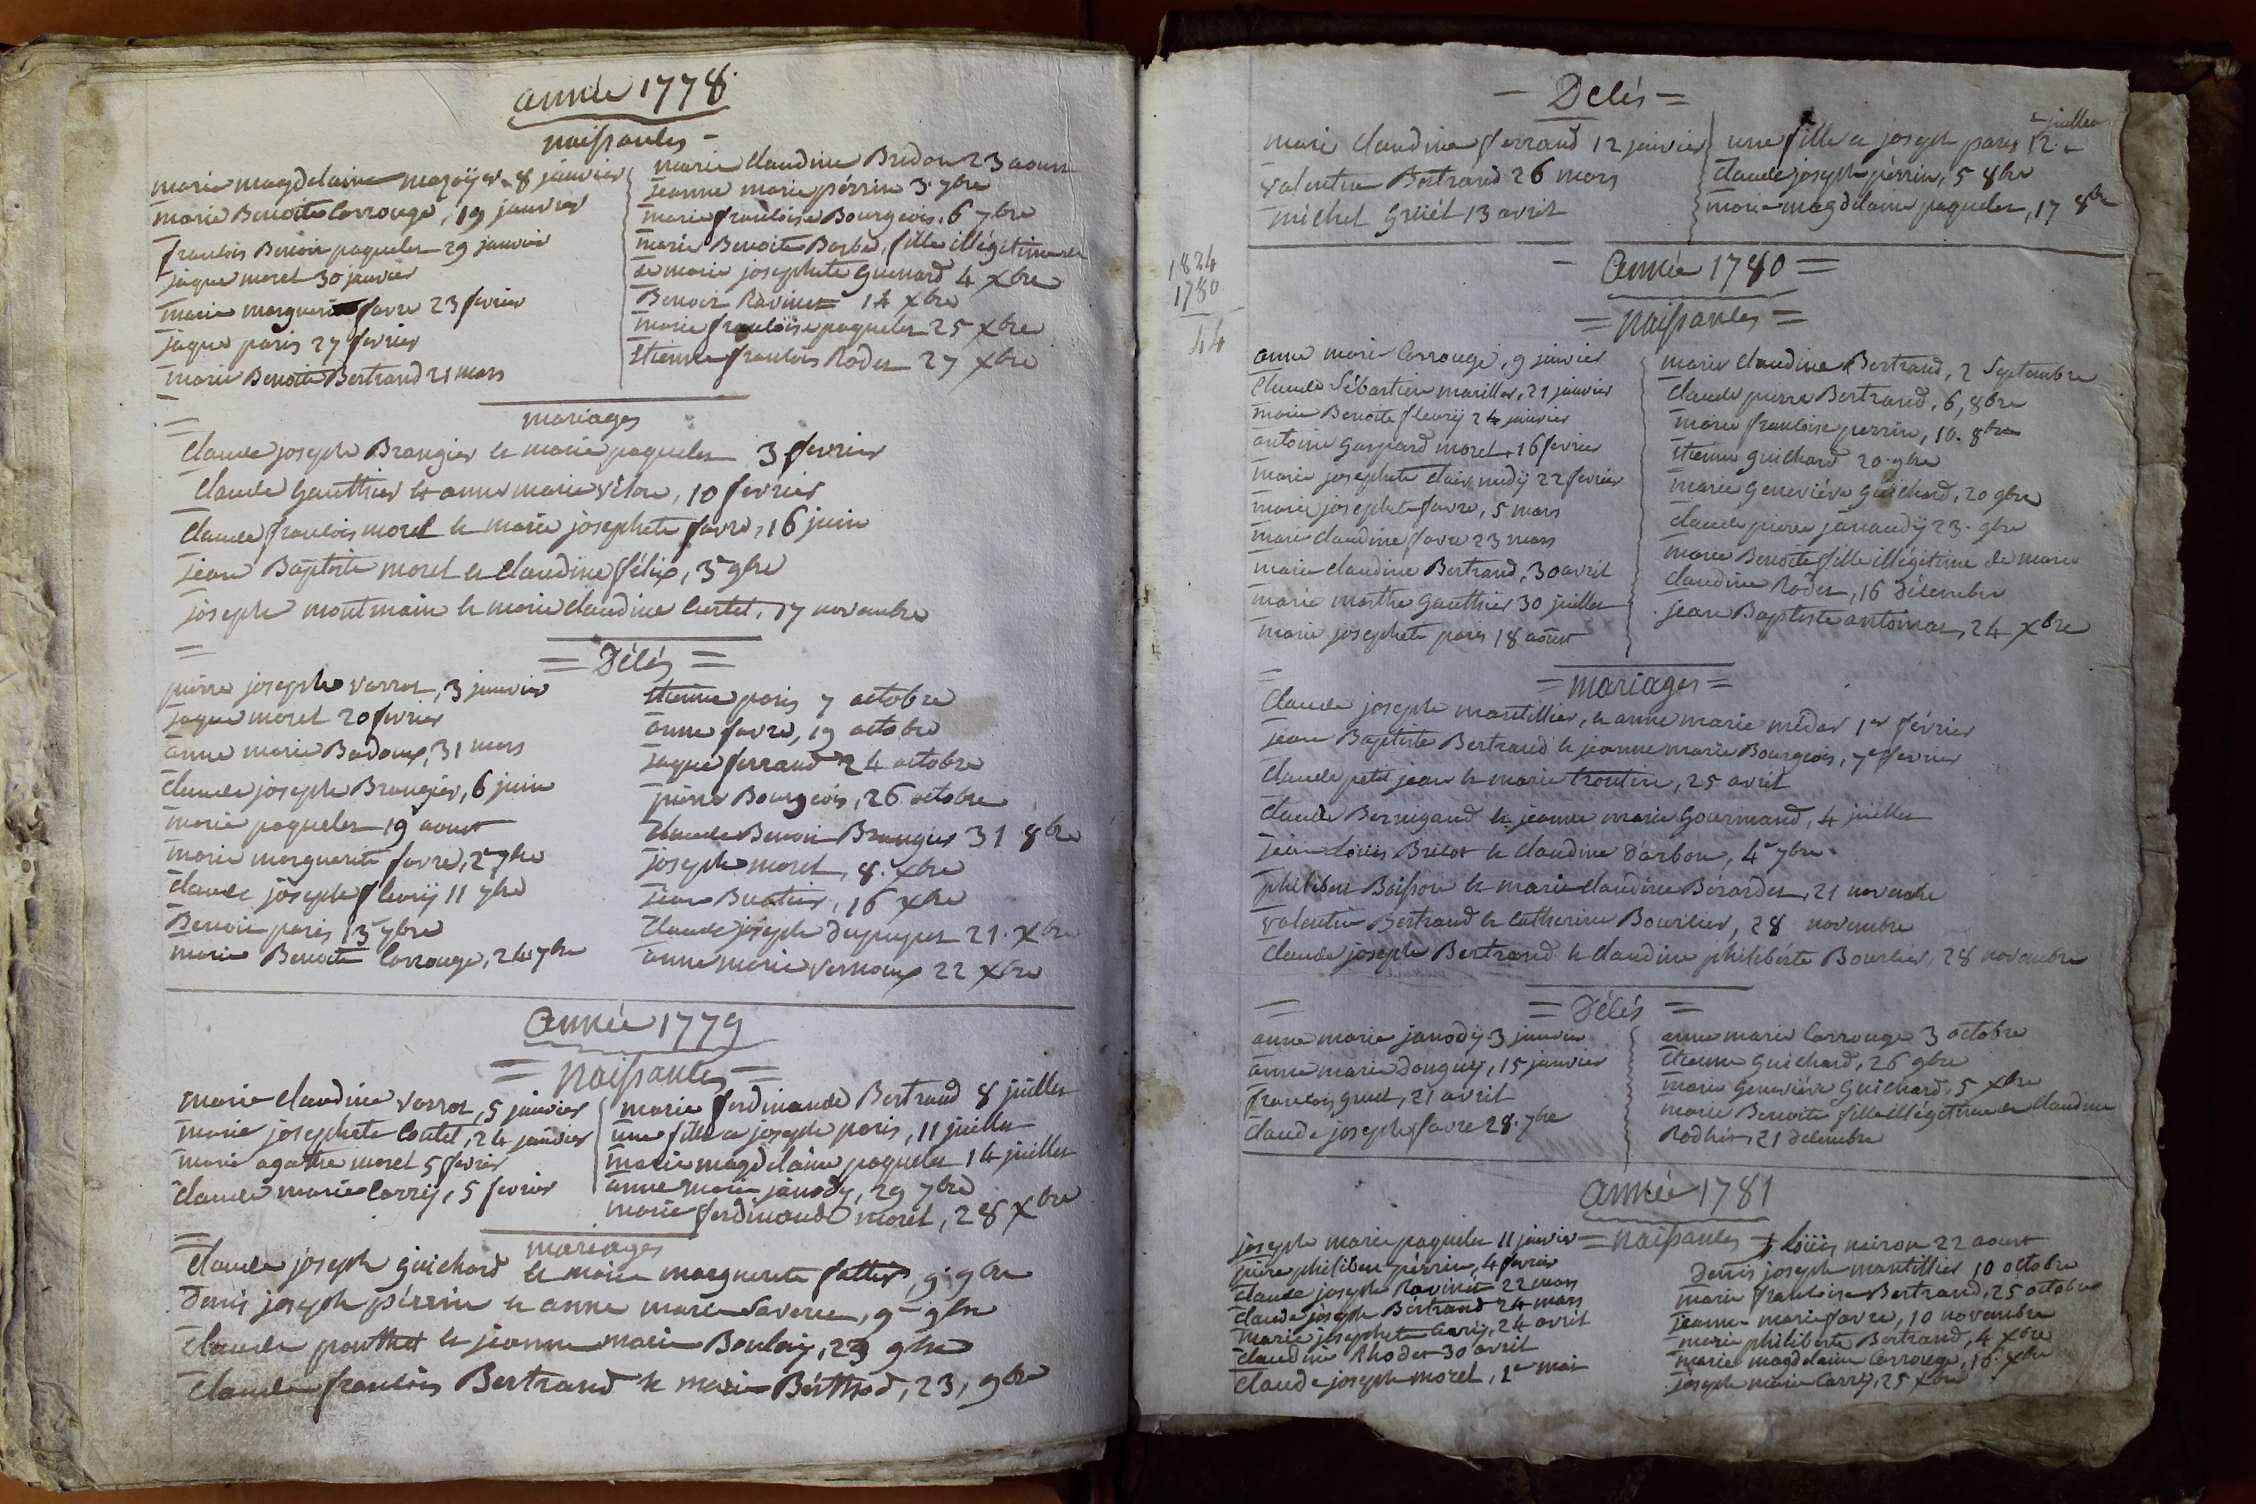 année 1778
naissances
marie magdelaine mazoÿer 8 janvier
marie Benoite Corrouge, 19 janvier
francois Benoit paquelet 29 janvier
jaque morel 30 janvier
marie marguerite favre 23 fevrier
jaque paris 27 fevrier
marie Benoite Bertrand 21 mars
marie claudine Bridon 23 aoust
jeanne marie périn 3 7bre
marie francoise Bourgeois, 6 7bre
marie Benoite Barbe, fille illégitime
de marie josephete Guenard 4 Xbre
Benoit Ravinet 14 Xbre
marie francoise paquelet 25 Xbre
Etienne francois Rodet 27 Xbre
mariages
Claude joseph Brangier et marie paquelet 3 fevrier
Claude Gauthier et anne marie vélon, 10 fevrier
Claude francois morel et marie josephete favre, 16 juin
jean Baptiste morel et claudine félix, 3 9bre
joseph montmain et marie claudine Curtet, 17 novembre
Décés
pierre joseph varrot, 3 janvier
jaque morel 20 fevrier
anne marie Badoux, 31 mars
Claude joseph Brangier, 6 juin
marie paquelet 19 aoust
marie marguerite favre, 2 7bre
claude joseph fleurÿ 11 7bre
Benoit paris 13 7bre
marie Benoite Corrouge, 24 7bre
Etienne paris 7 octobre
anne favre, 19 octobre
jaque ferrand 24 octobre
pierre Bourgeois, 26 octobre
Claude Benoit Brangier 31 8bre
joseph morel, 8 Xbre
jean Buatier, 16 Xbre
Claude joseph dupupet 21 Xbre
anne marie vernoux 22 Xbre
Année 1779
Naissances
marie claudine varrot, 5 janvier
marie josephete Coutet, 24 janvier
marie agathe morel 5 fevrier
claude marie Carrÿ, 5 fevrier
marie ferdinande Bertrand 8 juillet
une fille a joseph paris, 11 juillet
marie magdelaine paquelet 14 juillet
anne marie janody, 29 7bre
marie ferdinande morel, 28 Xbre
mariages
Claude joseph guichard et marie marguerite 9 9bre
Denis joseph périn et anne marie Saverie, 9 9bre
Claude pouthet et jeanne marie Boulay, 23 9bre
Claude francois Bertrand et marie Bérthod, 23, 9bre
Décés
marie claudine ferrand 12 janvier
valentin Bertrand 26 mars
michel Grüel 13 avril
une fille a joseph paris 12 juillet
Claude joseph périn, 5 8bre
marie magdelaine paquelet, 17 8bre
1824
1780
44
Année 1780
Naissances
anne marie Corrouge, 9 janvier
Claude Sébastien marillet, 21 janvier
marie Benoite fleurÿ 24 janvier
antoine Gaspard morel, 16 fevrier
marie josephete clair midÿ 22 fevrier
marie josephete favre, 5 mars
marie claudine favre 23 mars
marie claudine Bertrand, 30 avril
marie marthe Gauthier 30 juillet
marie josephete paris 18 aoust
marie claudine Bertrand, 2 Septembre
claude pierre Bertrand, 6, 8bre
marie francoise perrin, 10. 8bre
Etienne guichard 20 9bre
marie Geneviéve Guichard, 20 9bre
claude pierre janaudÿ 23. 9bre
marie Benoite fille illégitime de marie
claudine Rodet, 16 décembre
jean Baptiste antoinat, 24 Xbre
mariages
Claude joseph mantillier, et anne marie médat 1er février
jean Baptiste Bertrand et jeanne marie Bourgeois, 7e fevrier
Claude petit jean et marie troutin, 25 avril
Claude Bernigaud et jeanne marie Gourmand, 4 juillet
jean Loüis Brelot et claudine darbon, 4e 7bre
philibert Boisson et marie claudine Bérardet, 21 novembre
valentin Bertrand et Catherine Bourlier, 28 novembre
Claude joseph Bertrand et claudine philibérte Bourlier, 28 novembre
Décés
anne marie janodÿ 3 janvier
anne marie donguy, 15 janvier
francois gruel, 21 avril
Claude joseph favre 28. 7bre
anne marie Corrouge 3 octobre
Etienne Guichard, 26 9bre
marie Geneviéve Guichard, 5 Xbre
marie Benoite fille illégitime de claudine
Rodhet, 21 decembre
Année 1781
naissances
joseph marie paquelet 11 janvier
pierre philibert périn, 4 fevrier
claude joseph Ravinet 22 mars
claude joseph Bértrand 24 mars
marie josephete Carrÿ, 24 avril
claudine Rhodet 30 avril
claude joseph morel, 1er mai
Loüis neiron 22 aoust
Denis joseph mantillier 10 octobre
marie francoise Bertrand, 25 octobre
jeanne marie favre, 10 novembre
marie philiberte Bertrand, 4 Xbre
marie magdelaine Corrouge, 16 Xbre
joseph marie Carrÿ, 25 Xbre